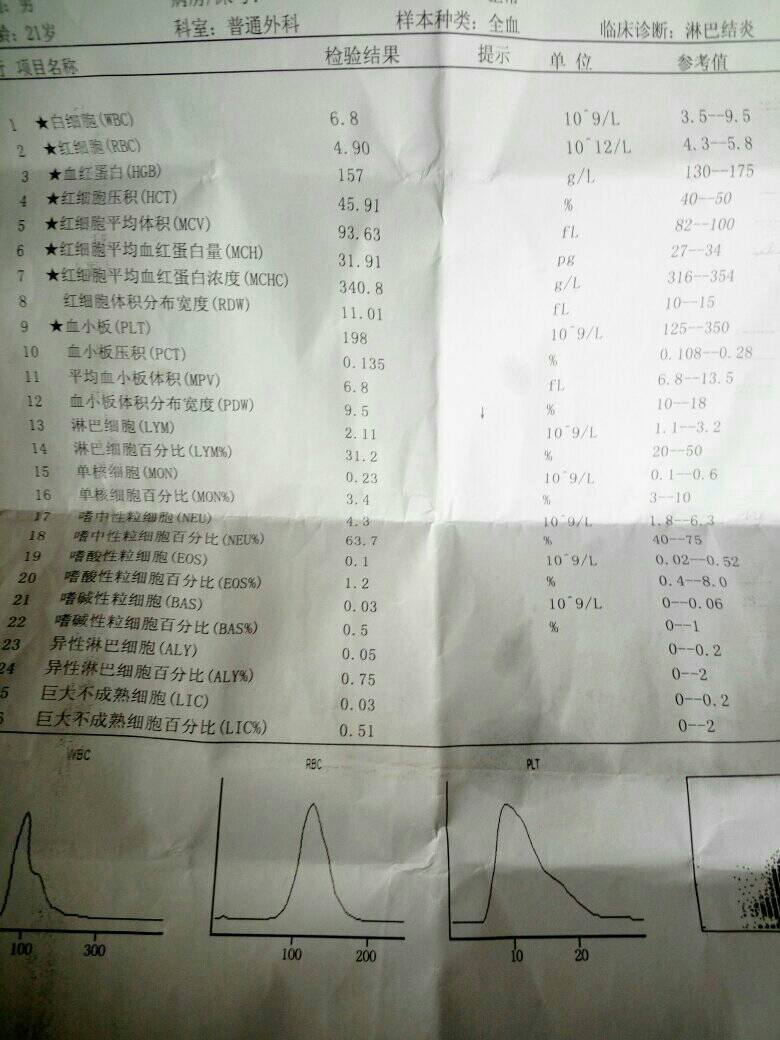 男
21岁 科室: 普通外科 样本种类: 全血 临床诊断: 淋巴结炎
行 项目名称 检验结果 提示 单 位 参考值
1 ★白细胞(WBC) 6.8 10^9/L 3.5--9.5
2 ★红细胞(RBC) 4.90 10^12/L 4.3--5.8
3 ★血红蛋白(HGB) 157 g/L 130--175
4 ★红细胞压积(HCT) 45.91 % 40--50
5 ★红细胞平均体积(MCV) 93.63 fL 82--100
6 ★红细胞平均血红蛋白量(MCH) 31.91 pg 27--34
7 ★红细胞平均血红蛋白浓度(MCHC) 340.8 g/L 316--354
8 红细胞体积分布宽度(RDW) 11.01 fL 10--15
9 ★血小板(PLT) 198 10^9/L 125--350
10 血小板压积(PCT) 0.135 % 0.108--0.28
11 平均血小板体积(MPV) 6.8 fL 6.8--13.5
12 血小板体积分布宽度(PDW) 9.5 ↓ % 10--18
13 淋巴细胞(LYM) 2.11 10^9/L 1.1--3.2
14 淋巴细胞百分比(LYM%) 31.2 % 20--50
15 单核细胞(MON) 0.23 10^9/L 0.1--0.6
16 单核细胞百分比(MON%) 3.4 % 3--10
17 嗜中性粒细胞(NEU) 4.3 10^9/L 1.8--6.3
18 嗜中性粒细胞百分比(NEU%) 63.7 % 40--75
19 嗜酸性粒细胞(EOS) 0.1 10^9/L 0.02--0.52
20 嗜酸性粒细胞百分比(EOS%) 1.2 % 0.4--8.0
21 嗜碱性粒细胞(BAS) 0.03 10^9/L 0--0.06
22 嗜碱性粒细胞百分比(BAS%) 0.5 % 0--1
23 异性淋巴细胞(ALY) 0.05 0--0.2
24 异性淋巴细胞百分比(ALY%) 0.75 0--2
5 巨大不成熟细胞(LIC) 0.03 0--0.2
6 巨大不成熟细胞百分比(LIC%) 0.51 0--2
WBC RBC PLT
100 300 100 200 10 20